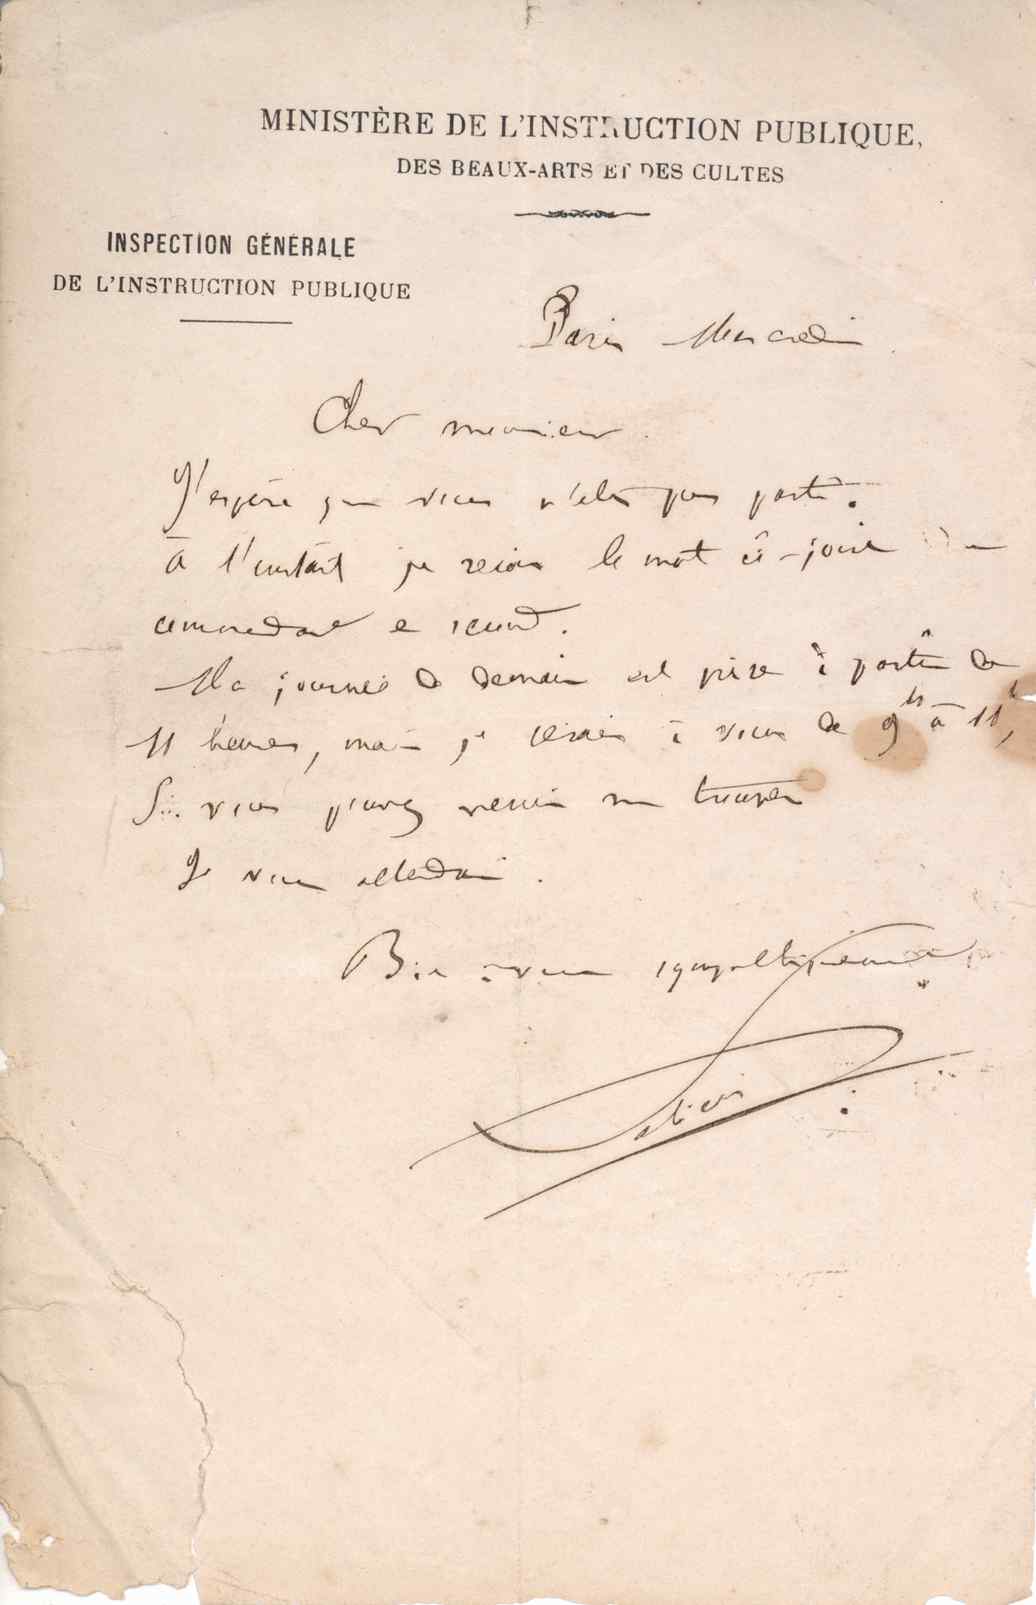 MINISTÈRE DE L'INSTRUCTION PUBLIQUE,
DES BEAUX-ARTS ET DES CULTES
INSPECTION GÉNÉRALE
DE L'INSTRUCTION PUBLIQUE
Paris Mercredi
Cher monsieur
J'espère que vous n'êtes pas parti.
À l'instant je reçois le mot ci-joint du
commandant en second.
Ma journée de demain est prise à partir de
11 heures, mais je serais à vous de 9h à 11h,
Si vous pouvez venir me trouver
Je vous attendrai.
Bien à vous sympathiquement